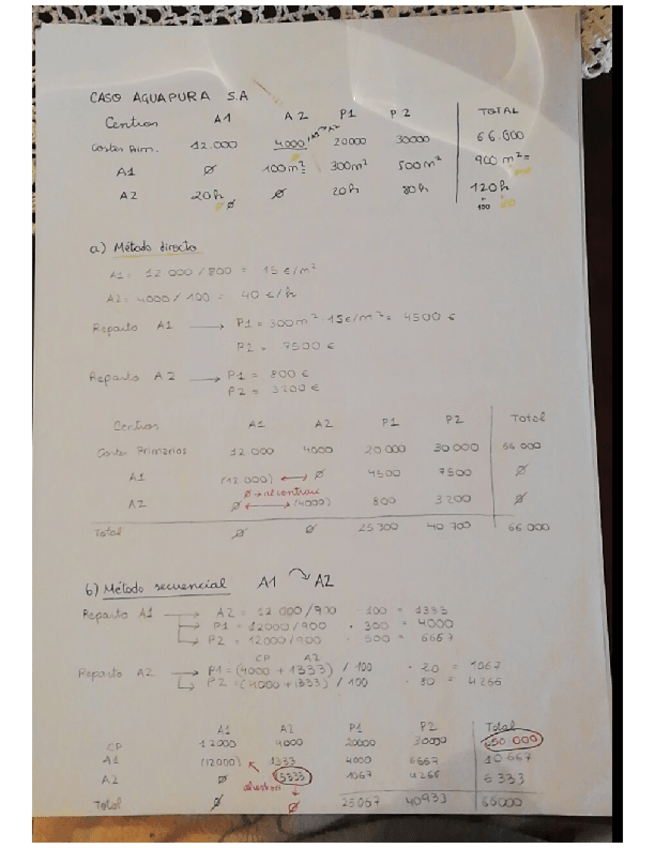 CASO AGUAPURA S.A
Centros A1 A2 P1 P2 TOTAL
Costes Prim. 12.000 4000 A1 A2 20000 30000 66.000
A1 ∅ 100m² 300m² 500m² 900 m²=
A2 20h ∅ 20h 80h 120h
∅ 100
a) Método directo
A1= 12 000 / 800 = 15 €/m²
A2= 4000 / 100 = 40 €/h
Reparto A1 → P1 = 300m² · 15€/m² = 4500 €
P2 = 7500 €
Reparto A2 → P1 = 800 €
P2 = 3200 €
Centros A1 A2 P1 P2 Total
Costes Primarios 12 000 4000 20 000 30 000 66 000
A1 (12 000) ↔ ∅ 4500 7500 ∅
∅ → al contrario
A2 ∅ ↔ (4000) 800 3 200 ∅
Total ∅ ∅ 25 300 40 700 66 000
b) Método secuencial A1 A2
Reparto A1 → A2 = 12 000/900 · 100 = 1333
→ P1 = 12000/900 · 300 = 4000
→ P2 = 12000/900 · 500 = 6667
CP A2
Reparto A2 → P1 = (4000 + 1333) / 100 · 20 = 1067
→ P2 = (4000 + 1333) / 100 · 80 = 4266
A1 A2 P1 P2 Total
CP 12000 4000 20000 30000
A1 (12000) 1333 4000 6667 10 667
A2 ∅ 5333 1067 4266 6 333
Total ∅ ∅ 25067 40933 66000